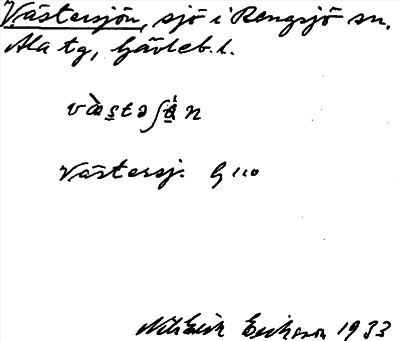 Västersjön, sjö i Rengsjö sn.
Ala tg, Gävleb. l.
Västersj. G 110
Nils Erik Eriksson 1933